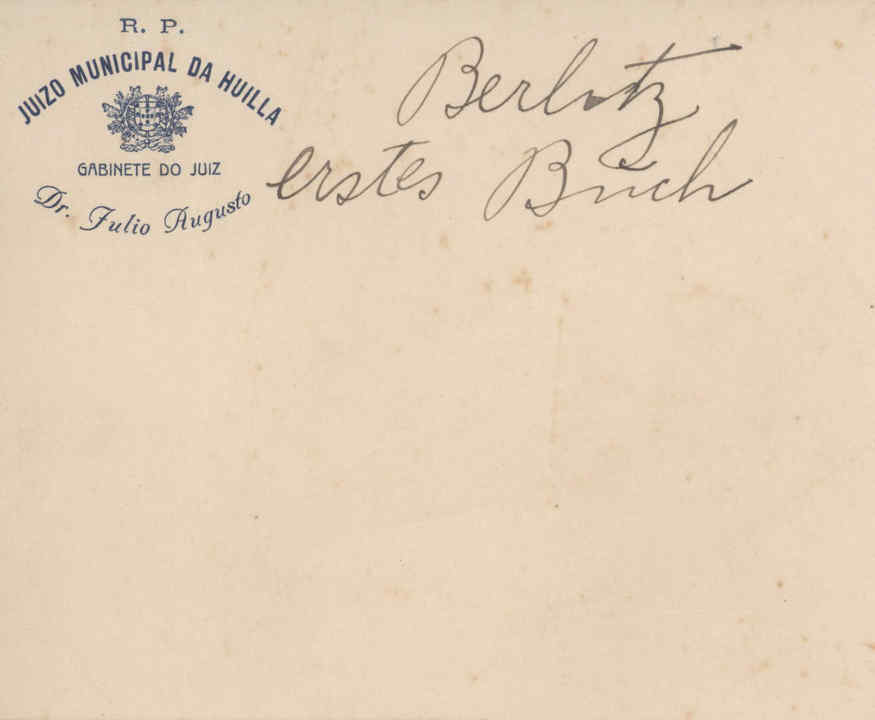 R. P.
JUIZO MUNICIPAL DA HUILLA
GABINETE DO JUIZ
Dr. Julio Augusto
Berlitz
erstes Buch